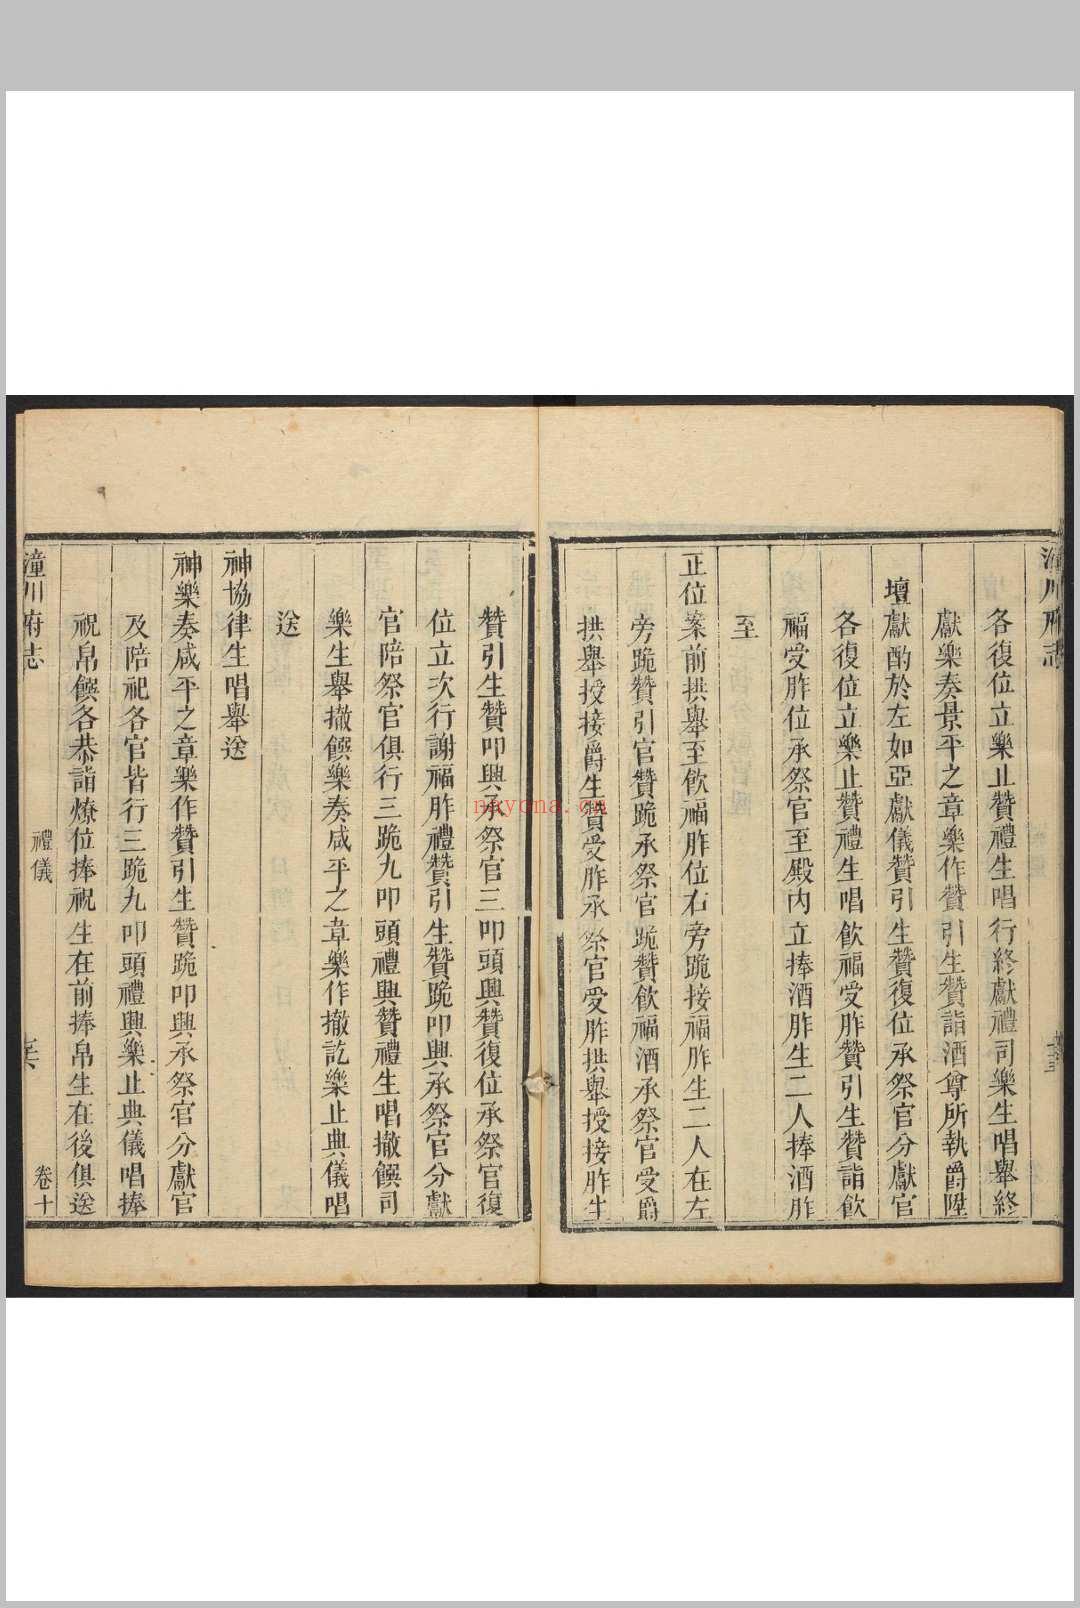 潼川府志
各復位立樂止贊禮生唱行終獻禮司樂生唱舉終
獻樂奏景平之章樂作贊引生贊詣酒尊所執爵陞
壇獻酌於左如亞獻儀贊引生贊復位承祭官分獻官
各復位立樂止贊禮生唱飲福受胙贊引生贊詣飲
福受胙位承祭官至殿内立捧酒胙生二人捧酒胙
至
正位案前拱舉至飲福胙位右旁跪接福胙生二人在左
旁跪贊引官贊跪承祭官跪贊飲福酒承祭官受爵
拱舉授接爵生贊受胙承祭官受胙拱舉授接胙生
贊引生贊叩興承祭官三叩頭興贊復位承祭官復
位立次行謝福胙禮贊引生贊跪叩興承祭官分獻
官陪祭官俱行三跪九叩頭禮興贊禮生唱撤饌司
樂生舉撤饌樂奏咸平之章樂作撤訖樂止典儀唱
送
神協律生唱舉送
神樂奏咸平之章樂作贊引生贊跪叩興承祭官分獻官
及陪祀各官皆行三跪九叩頭禮興樂止典儀唱捧
祝帛饌各恭詣燎位捧祝生在前捧帛生在後俱送
潼川府志
禮儀
卷十
nayona.cn